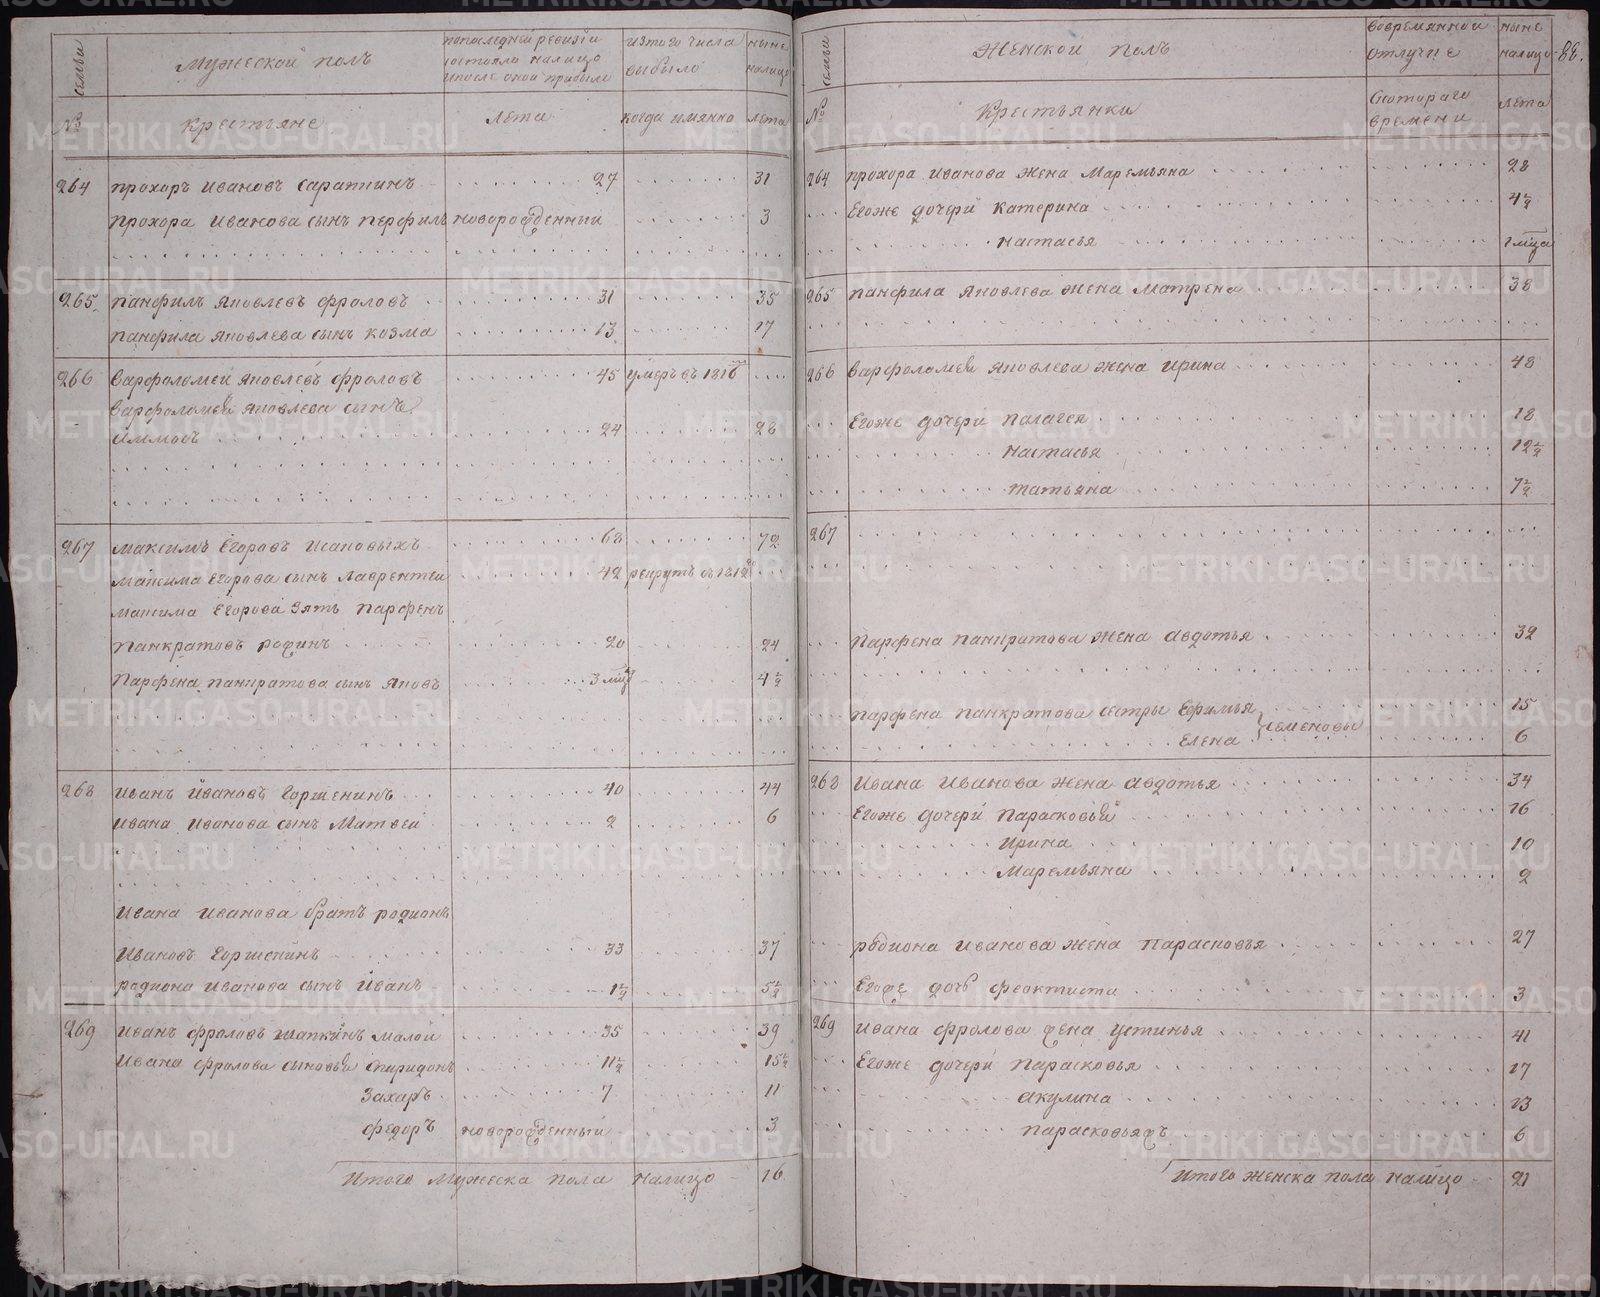 семьи
Мужеской полъ
попоследней ревизiи
состояло налицо
ипосле оной прибыло
изтого числа
выбыло
ныне
налицо
№
крестьяне
лета
когда имянно
лета
264 прохоръ Ивановъ Сарапинъ 27 31
прохора Иванова сынъ перфилъ новорожденный 3
265 панфилъ Яковлевъ фроловъ 31 35
панфила Яковлева сынъ козма 13 17
266 варфоломей Яковлевъ фроловъ 45 умеръ въ 1816
варфоломея Яковлева сынъ
24 28
267 максимъ Егоровъ Исаковыхъ 68 72
максима Егорова сынъ Лаврентей 42 рекрутъ съ 1812
максима Егорова зять Парфенъ
панкратовъ родинъ 20 24
Парфена панкратова сынъ Яковъ 3 мцa 4½
268 иванъ Ивановъ Горшенинъ 40 44
ивана Иванова сынъ Матвей 2 6
ивана иванова братъ родионъ
Ивановъ Горшенинъ 33 37
родиона Иванова сынъ Иванъ 1½ 5½
269 иванъ фроловъ шапкинъ малой 35 39
Ивана фролова сыновья Спиридонъ 11½ 15½
Захаръ 7 11
федоръ новорожденный 3
Итого Мужеска пола налицо 16
семьи
Женской полъ
вовремянной
отлучке
ныне
налицо
88.
№
Крестьянки
Скотораго
времени
лета
264 прохора Иванова жена Маремьяна 28
Егоже дочери катерина 4½
настасья 1 мцa
265 панфила Яковлева жена Матрена 38
266 варфоломея Яковлева жена ирина 48
Егоже дочери палагея 18
настасья 12½
татьяна 7½
267
Парфена панкратова жена авдотья 32
парфена панкратова сестры Ефимья 15
семеновы
Елена 6
268 Ивана Иванова жена авдотья 34
Егоже дочери Парасковья 16
ирина 10
Маремьяна 2
родиона иванова жена парасковья 27
Егоже дочь феоктиста 3
269 ивана фролова жена устинья 41
Егоже дочери Парасковья 17
акулина 13
парасковья жъ 6
Итого женска пола налицо 21
METRIKI.GASO-URAL.RU